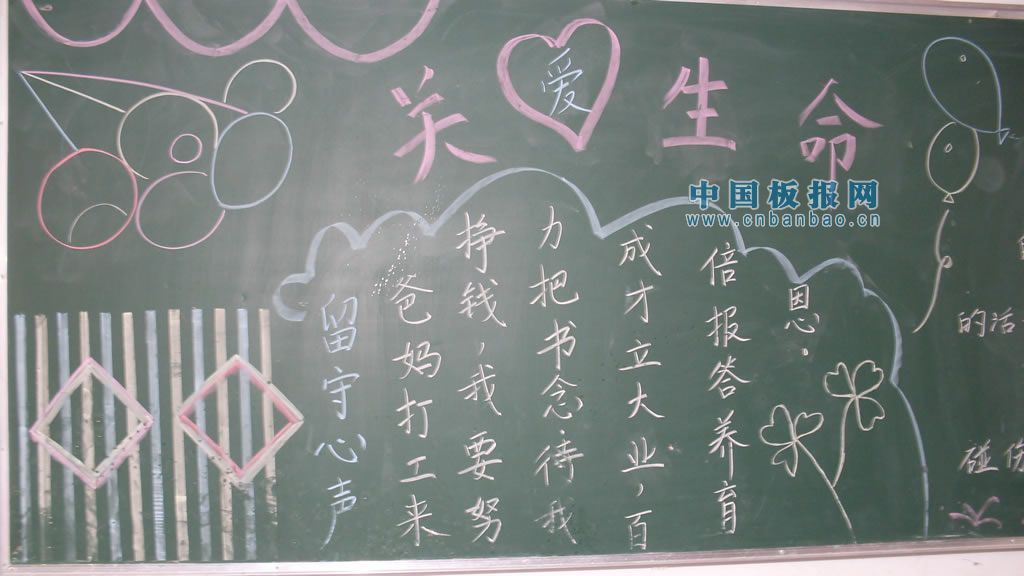 关爱生命
中国板报网
www.cnbanbao.cn
留守心声
爸妈打工来
挣钱，我要努
力把书念。待我
成才立大业，百
倍报答养育
恩。
的活
碰伤